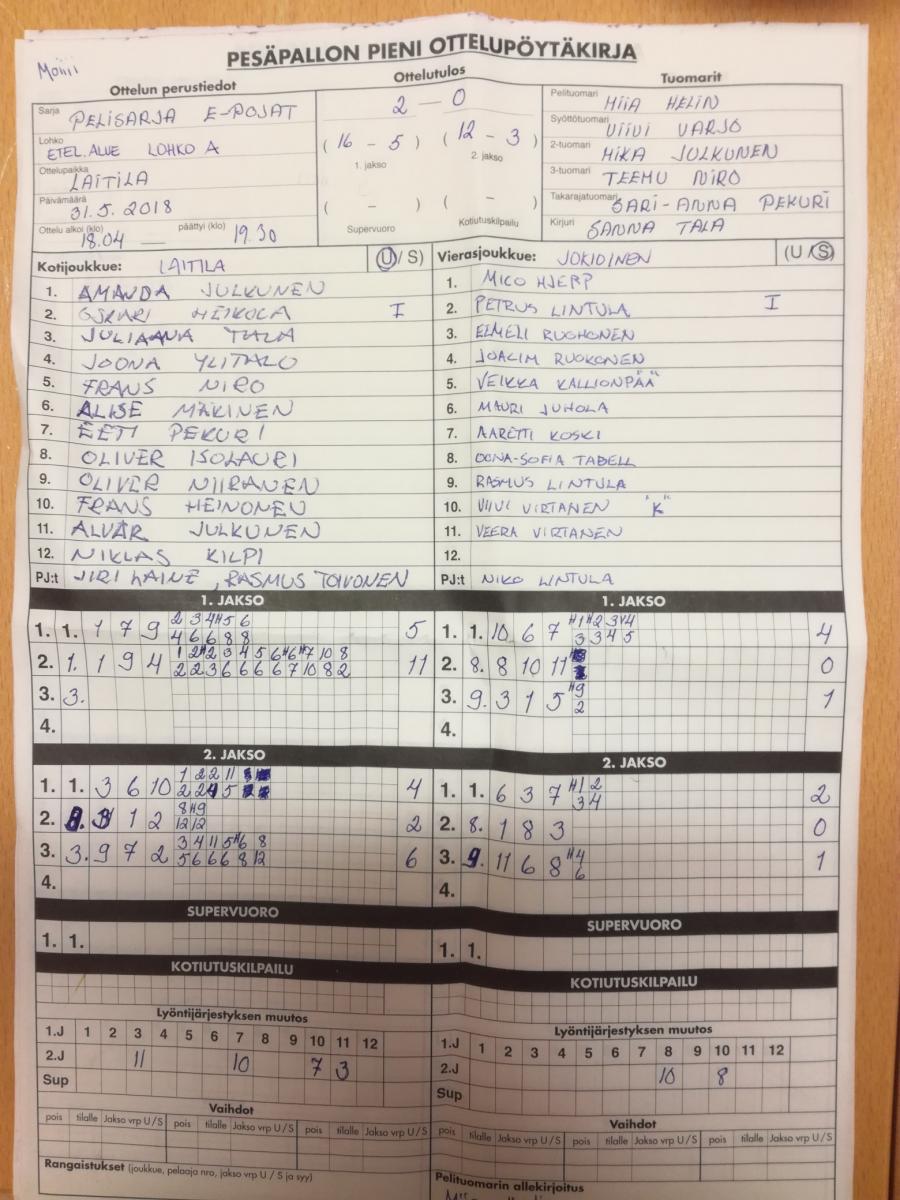 Moiii
PESÄPALLON PIENI OTTELUPÖYTÄKIRJA
Ottelun perustiedot
Sarja PELISARJA E-POJAT
Lohko ETEL.ALUE LOHKO A
Ottelupaikka LAITILA
Päivämäärä 31.5. 2018
Ottelu alkoi (klo) 18.04 — päättyi (klo) 19.30
Ottelutulos
2 – 0
( 16 – 5 ) ( 12 – 3 )
1. jakso 2. jakso
( – ) ( – )
Supervuoro Kotiutuskilpailu
Tuomarit
Pelituomari MIIA HELIN
Syöttötuomari VIIVI VARJO
2-tuomari MIKA JULKUNEN
3-tuomari TEEMU NIRO
Takarajatuomari SARI-ANNA PEKURI
Kirjuri SANNA TALA
Kotijoukkue: LAITILA (U/ S)
1. AMANDA JULKUNEN
2. OSKARI HEIKOLA I
3. JULIAANA TALA
4. JOONA YLITALO
5. FRANS NIRO
6. ALISE MÄKINEN
7. EETI PEKURI
8. OLIVER ISOLAURI
9. OLIVER NIIRANEN
10. FRANS HEINONEN
11. ALVAR JULKUNEN
12. NIKLAS KILPI
PJ:t JIRI LAINE, RASMUS TOIVONEN
Vierasjoukkue: JOKIOINEN (U / S)
1. MICO HJERP
2. PETRUS LINTULA I
3. ELMELI RUOHONEN
4. JOACIM RUOKONEN
5. VEIKKA KALLIONPÄÄ
6. MAURI JUHOLA
7. AARETTI KOSKI
8. OONA-SOFIA TABELL
9. RASMUS LINTULA
10. VIIVI VIRTANEN "K"
11. VEERA VIRTANEN
12.
PJ:t NIKO LINTULA
1. JAKSO
1. 1. 1 7 9 2 3 4 H5 6 5
4 6 6 8 8
2. 1. 1 9 4 1 2 H2 3 4 5 6 H6 H7 10 8 11
2 2 3 6 6 6 6 7 10 8 2
3. 3.
4.
1. JAKSO
1. 1. 10 6 7 H1 H2 3 H4 4
3 3 4 5
2. 8. 8 10 11 0
3. 9. 3 1 5 H9 1
2
4.
2. JAKSO
1. 1. 3 6 10 1 2 2 11 4
2 2 4 5
2. 1 2 8 H9 2
12 12
3. 3. 9 7 2 3 4 11 5 H6 8 6
5 6 6 6 8 12
4.
2. JAKSO
1. 1. 6 3 7 H1 2 2
3 4
2. 8. 1 8 3 0
3. 9. 11 6 8 H4 1
6
4.
SUPERVUORO
1. 1.
SUPERVUORO
1. 1.
KOTIUTUSKILPAILU
KOTIUTUSKILPAILU
Lyöntijärjestyksen muutos
1.J 1 2 3 4 5 6 7 8 9 10 11 12
2.J 11 10 7 3
Sup
Lyöntijärjestyksen muutos
1.J 1 2 3 4 5 6 7 8 9 10 11 12
2.J 10 8
Sup
Vaihdot
pois tilalle Jakso vrp U / S pois tilalle Jakso vrp U / S pois tilalle Jakso vrp U / S
Vaihdot
pois tilalle Jakso vrp U / S pois tilalle Jakso vrp U / S pois tilalle Jakso vrp U / S
Rangaistukset (joukkue, pelaaja nro, jakso vrp U / S ja syy)
Pelituomarin allekirjoitus